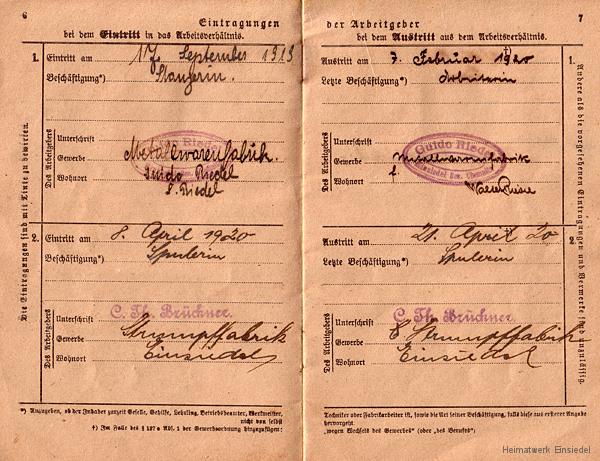 6
Eintragungen
bei dem Eintritt in das Arbeitsverhältnis.
1. Eintritt am 17. September 1919
Beschäftigung*) Stanzerin.
Des Arbeitgebers
Unterschrift
Gewerbe Metallwarenfabrik.
Wohnort Guido Riedel
Guido Riedel
2. Eintritt am 8. April 1920
Beschäftigung*) Spulerin
Des Arbeitgebers
Unterschrift C. Th. Brückner.
Gewerbe Strumpffabrik
Wohnort Einsiedel
Die Eintragungen sind mit Tinte zu bewirken.
*) Anzugeben, ob der Inhaber zurzeit Geselle, Gehilfe, Lehrling, Betriebsbeamter, Werkmeister,
nicht von selbst
†) Im Falle des § 127e Abs. 1 der Gewerbeordnung hinzuzufügen:
7
der Arbeitgeber
bei dem Austritt aus dem Arbeitsverhältnis.
Austritt am 7. Februar 1920 1.
Letzte Beschäftigung*) Arbeiterin
Des Arbeitgebers
Unterschrift
Gewerbe Metallwarenfabrik
Wohnort
Guido Riedel
Einsiedel Bez. Chemnitz
Austritt am 21. April 20 2.
Letzte Beschäftigung*) Spulerin
Des Arbeitgebers
Unterschrift C. Th. Brückner.
Gewerbe Strumpffabrik
Wohnort Einsiedel
Andere als die vorgesehenen Eintragungen und Vermerke sind unzulässig.
Techniker oder Fabrikarbeiter ist, sowie die Art seiner Beschäftigung, falls diese aus ersterer Angabe
hervorgeht.
"wegen Wechsels des Gewerbes" (oder "des Berufes").
Heimatwerk Einsiedel